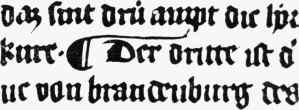 daz sint drü ampt die spa
kure. ¶ Der dritte ist d
ue von brandenburg des